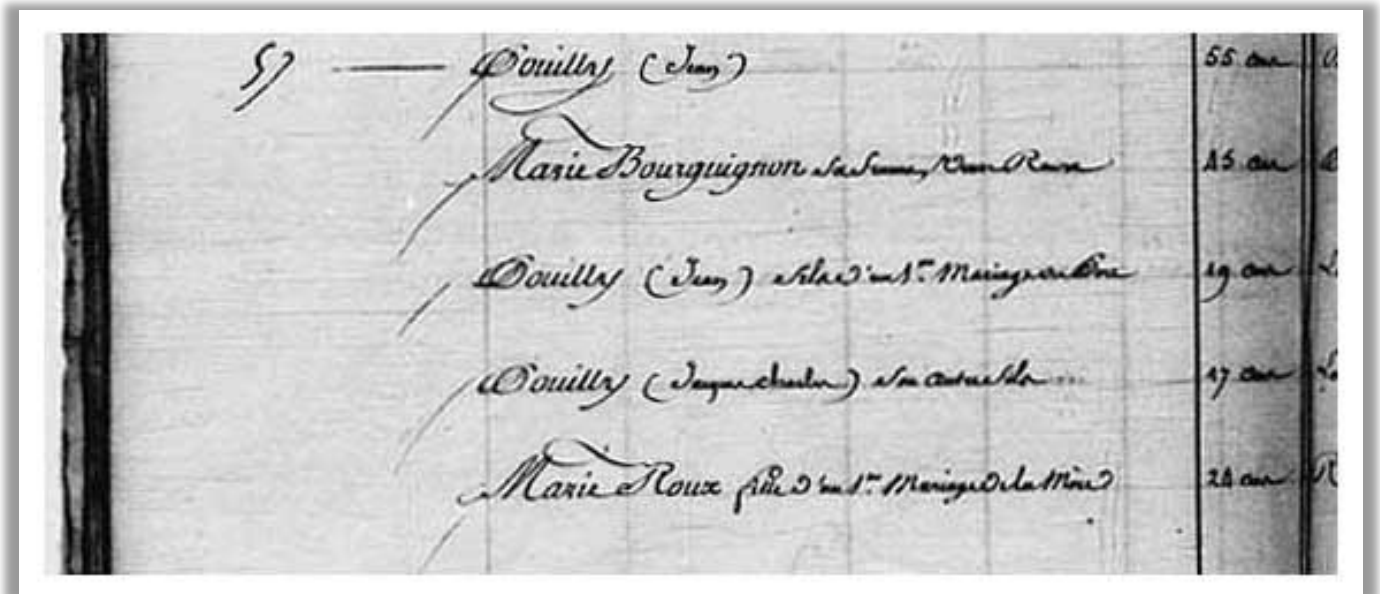 57 Pouilly (Jean) 55 ans
Marie Bourguignon sa femme, Veuve Roux 45 ans
Pouilly (Jean) fils d'un 1er Mariage du Père 19 ans
Pouilly (Jacques charles) son autre fils 17 ans
Marie Roux fille d'un 1er Mariage de la Mère 24 ans R